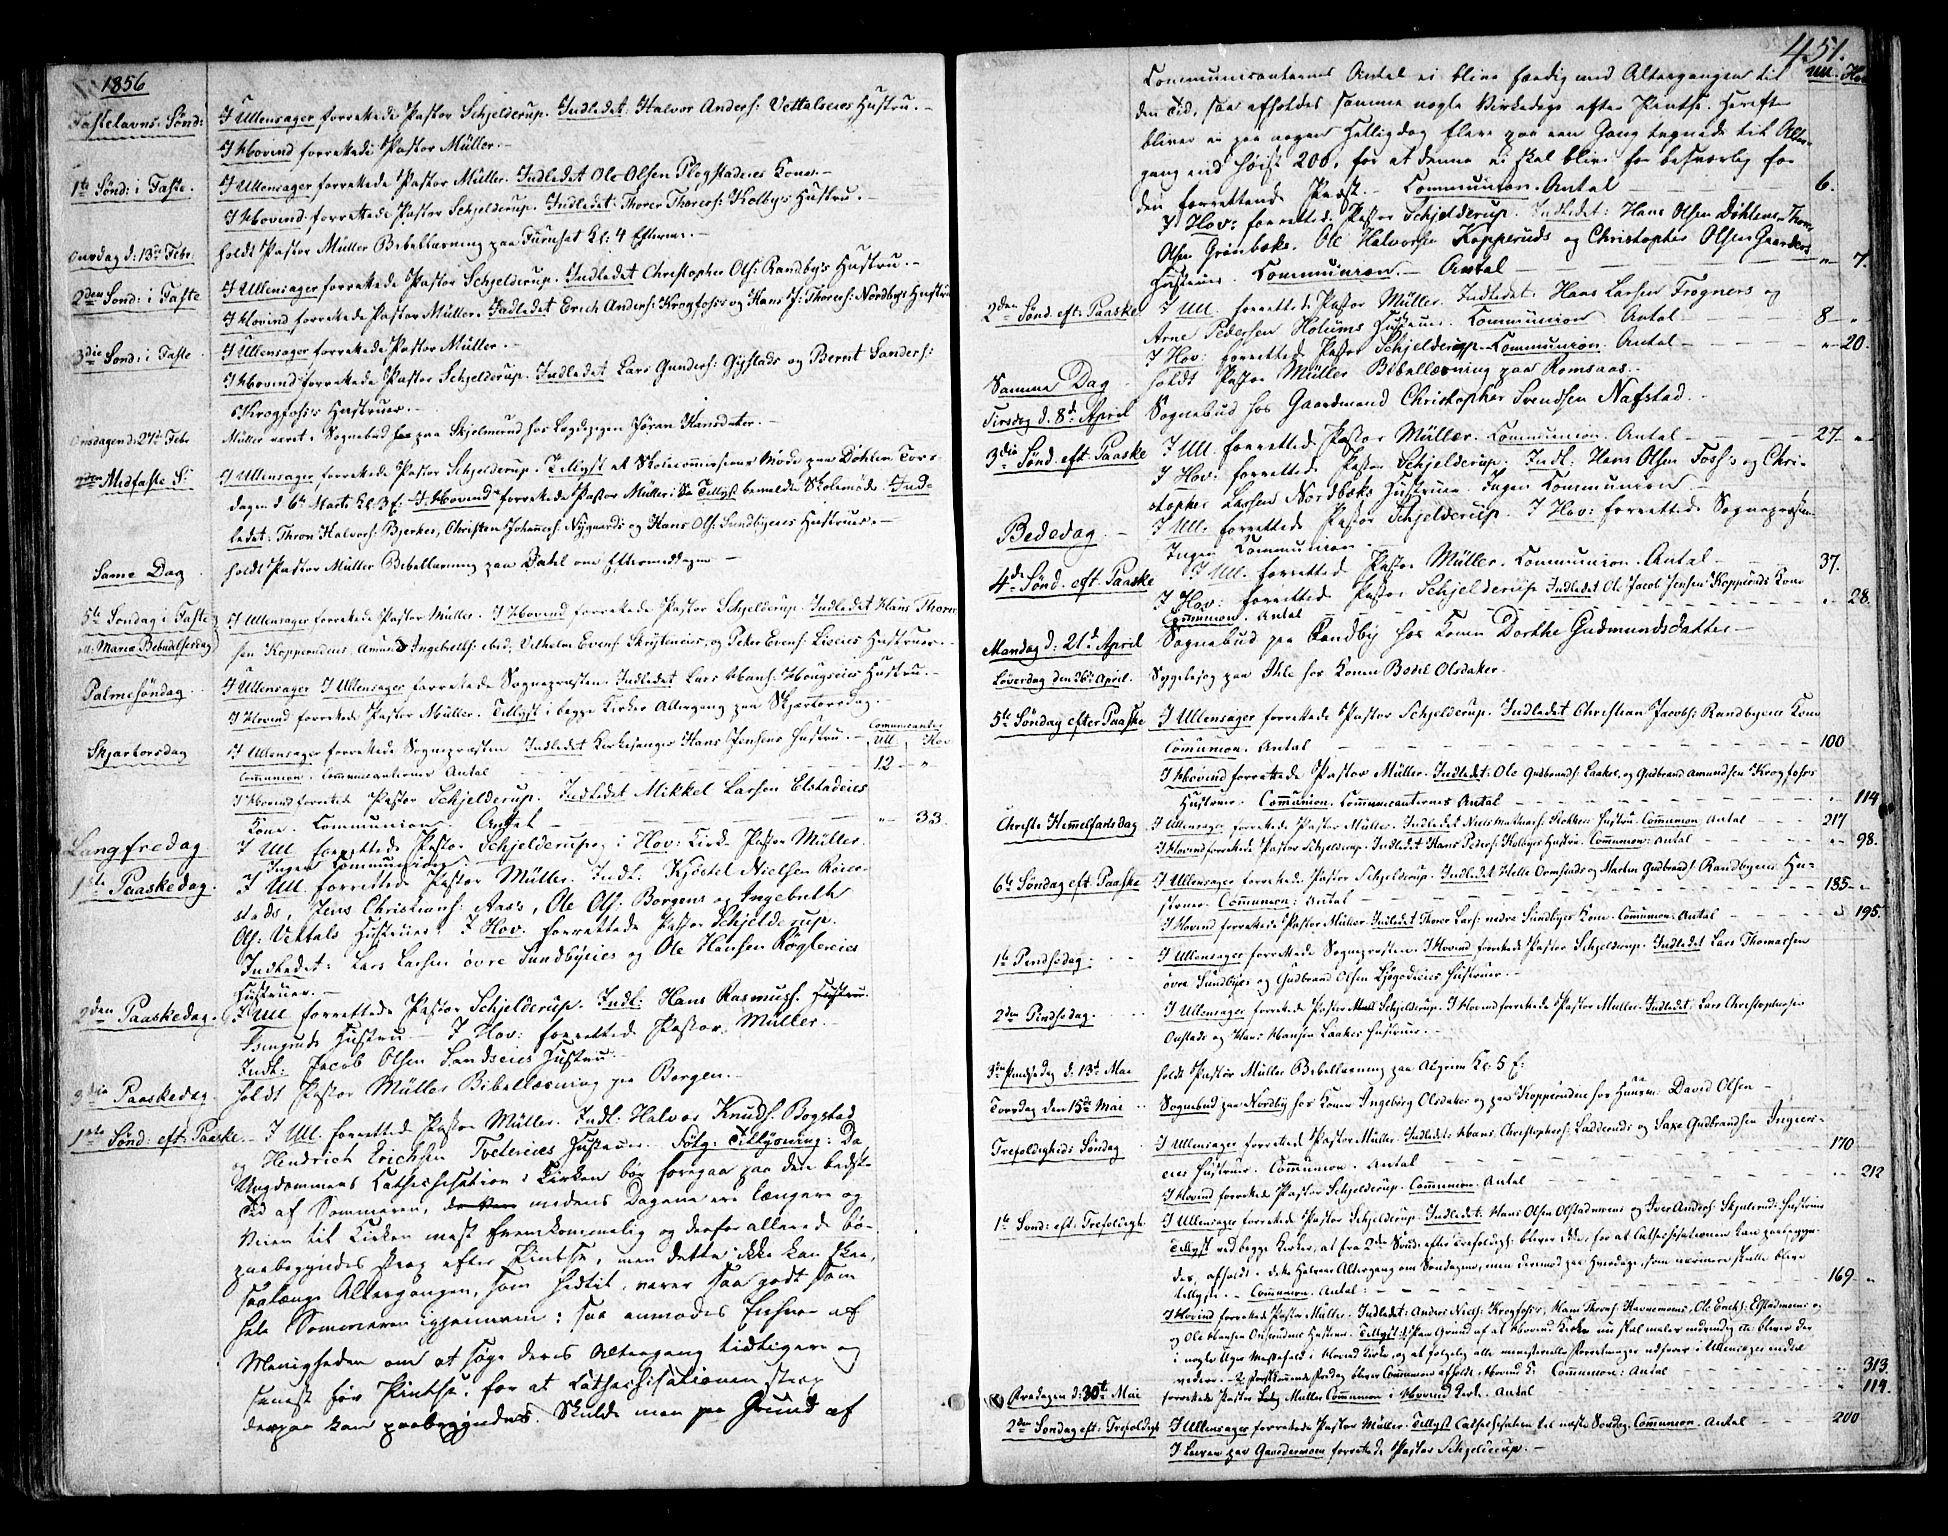 1856
Fastelavns Sönd: I Ullensager forrettede Pastor Schjelderup. Indledet: Halvor Anders: Vettaleies Hustru. —
I Hovind forrettede Pastor Müller. —
1te Sönd: i Faste. I Ullensager forrettede Pastor Müller. Indledet Ole Olsen Plogstadeies Kone. —
I Hovind forrettede Pastor Schjelderup. Indledet: Thorer Thorers: Kolbys Hustru. —
Onsdag d: 13de Febr. holdt Pastor Müller Bibellæsning paa Furuset Kl: 4 Efterm: —
2den Sönd: i Faste I Ullensager forrettede Pastor Schjelderup. Indledet Christopher Ols: Randbys Hustru. —
I Hovind forrettede Pastor Müller. Indledet Erich Anders: Krogfoss og Hans J: Thorers: Nordbys Hustru
3die Sönd: i Faste I Ullensager forrettede Pastor Müller. —
I Hovind forrettede Pastor Schjelderup. Indledet Lars Gunders: Gystads og Bernt Sanders:
Krogfoss Hustruer. —
Onsdagen d: 27de Febr Müller været i Sognebud paa Skjelmerud hos Lægdspigen Jöran Hansdatter. —
Midfaste S: I Ullensager forrettede Pastor Schjelderup. Tillyst at Skolecommissions Möde paa Döhlen Tors-
dagen d 6te Marts Kl. 3 E: I Hovind forrettede Pastor Müller. Tillyst bemeldte Skolemöde. Ind-
ledet: Thron Halvors: Bjerkes, Christen Johannes: Nygaards og Hans Ols: Sundbyeies Hustruer. —
Same Dag holdt Pastor Müller Bibellæsning paa Dahl om Eftermiddagen —
5te Söndag i Faste I Ullensager forrettede Pastor Müller. I Hovind forrettede Pastor Schjelderup. Indledet Hans Thorer
Maria Bebudelsesdag sen Kopperudeies, Amund Ingebrethsen ibid, Vilhelm Evens: Skrytmeies, og Peder Evens: Lieeies Hustruer. —
Palmesöndag I Ullensager I Ullensager forrettede Sognepræsten. Indledet Lars Hans: Hougseies Hustru. —
I Hovind forrettede Pastor Müller. Tillyst i begge Kirker Altergang paa Skjærtorsdag. —
Comunicanter
Ull. Hov
Skjærtorsdag I Ullensager forrettede Sognepræsten Indledet Kirkesanger Hans Jensens Hustru. —
Communion. Communicanternes Antal — 12 — "
I Hovind forrettede Pastor Schjelderup. Indledet Mikkel Larsen Elstadeies
Kone. Communion Antal — " — 33
Langfredag I Ull. forrettede Pastor Schjelderup og i Hov: Kirke Pastor Müller.
Ingen Communion
1ste Paaskedag. I Ull. forrettede Pastor Müller. Indl. Kjöstel Nielsen Röier-
stads, Jens Christians: Aas's, Ole Ols: Borgens og Ingebreth
Ols: Vettals Hustruer. I Hov. forrettede Pastor Schjelderup.
Indledet: Lars Larsen övre Sundbyeies og Ole Hansen Röglereies
Hustruer. —
2den Paaskedag. I Ull forrettede Pastor Schjelderup. Indl: Hans Rasmuss. Hustru.
Hustru — I Hov: forrettede Pastor Müller. —
Indl: Jacob Olsen Sandseies Hustru. —
3die Paaskedag. holdt Pastor Müller Bibellæsning paa Borgen. —
1ste Sönd: eft: Paaske. I Ull. forrettede Pastor Müller. Indl: Halvor Knuds: Bogstad
og Hendrich Erichsen Tveitereies Hustruer. Fölg: Tillysning: Da
Ungdommens Cathechisation i Kirken bör foregaa paa den bedste
Tid af Sommeren, medens Dagene ere længere og
Veien til Kirken mest fremkommelig og derfor allerede bö-
paabegyndes strax efter Pintse, men dette ikke kan skee,
saalænge Altergangen, som hidtil, varer saa godt som
hele Sommeren igjennem: saa anmodes Enhver af
Menigheden om at söge deres Altergang tidligere og
senest för Pintse, for at Cathechisationen strax
derpaa kan paabegyndes. Skulde man paa Grund af
451.
Ull. Hov
Communicanternes Antal ei blive færdig med Altergangen til
den Tid, saa afholdes samme nogle Virkedage efter Pintse. Herefter
bliver ei paa nogen Helligdag flere paa een Gang tegnede til Alter-
gang end höist 200, for at denne ei skal blive for besværlig for
den forrettende Præst. — Communion. Antal — 6.
I Hov: forrettede Pastor Schjelderup. Indledet: Hans Olsen Döhlens, Thorer
Olsen Grönbæks, Ole Halvorsen Kopperuds og Christopher Olsen Gaarders
Hustruer. Communion. — Antal — " 7.
2den Sönd. eft: Paaske I Ull. forrettede Pastor Müller. Indledet: Hans Larsen Trogners og
Arne Pedersen Holums Hustruer. Communion Antal — 8 — "
I Hov: forrettede Pastor Schjelderup. Communion. Antal — " 20.
Samme Dag holdt Pastor Müller Bibellæsning paa Romsaas. —
Tirsdag d. 8de April Sognebud hos Gaardmand Christopher Svendsen Nafstad.
3die Sönd eft Paaske I Ull. forrettede Pastor Müller. Communion. Antal — 27. — "
I Hov: forrettede Pastor Schjelderup. Indl: Hans Olsen Foss's og Chri-
stopher Larsen Nordbæks Hustruer. Ingen Communion —
Bededag. — I Ull. forrettede Pastor Schjelderup. I Hov: forrettede Sognepræsten
Ingen Communion. —
4de Sönd. eft Paaske I Ull. forrettede Pastor Müller. Communion. Antal — 37.
I Hov: forrettede Pastor Schjelderup Indledet Ole Jacob Jensen Kopperuds Kone
Communion. Antal — " 28.
Mandag d: 21de April Sognebud paa Randby hos Konen Dorthe Gudmundsdatter —
Löverdag den 26de April. Sygebesög paa Ihle hos Konen Bodel Olsdatter.
5te Söndag efter Paaske I Ullensager forrettede Pastor Schjelderup. Indledet Christian Jacobs: Randbyeies Kone
Comunion. Antal — 100
I Hovind forrettede Pastor Müller. Indledet: Ole Gudbrands: Laakes, og Gudbrand Amundsen Krogfoss
Hustruer. Communion. Communicanternes Antal — " 114
Christi Himmelfartsdag I Ullensager forrettede Pastor Müller. Indledet Niels Mathias: Kokkers Hustru. Communion Antal — 217
I Hovind forrettede Pastor Schjelderup. Indledet Hans Peders: Kolbyes Hustru. Communion: Antal — " 98.
6te Söndag eft. Paaske I Ullensager forrettede Pastor Schjelderup. Indledet Helle Ormstads og Morten Gudbrands: Randbyeies Hu-
struer. Communion: Antal — 185 — "
I Hovind forrettede Pastor Müller. Indledet Thorer Lars: nedre Sundbyes Kone. Communion: Antal — " 195.
1te Pindsedag. I Ullensager forrettede Sognepræsten. I Hovind forrettede Pastor Schjelderup. Indledet Lars Thomassen
övre Sundbyes og Gudbrand Olsen Ljögodteies Hustruer. —
2den Pindsedag. I Ullensager forrettede Pastor Schjelderup. I Hovind forrettede Pastor Müller. Indledet: Lars Christophersen
Onstads og Hans Hansen Laakes Hustruer. —
3die Pindsedag d: 13de Mai holdt Pastor Müller Bibellæsning paa Algrim Kl: 5 E:
Torsdag den 15de Mai Sognebud paa Nordby hos Konen Ingeborg Olsdatter og paa Kopperudeie hos Huusm: David Olsen —
Trefoldigheds Söndag I Ullensager forrettede Pastor Müller. Indledet: Hans Christophers: Ladderuds og Saxe Gudbrandsen Ingier-
eies Hustruer. Communion. Antal — 170
I Hovind forrettede Pastor Schjelderup. Communion. Antal — 212
1te Sönd: eft: Trefoldigh. I Ullensager forrettede Pastor Schjelderup. Indledet: Hans Olsen Olstadmoens og Iver Anders: Skjelmrud: Hustruer
Tillyst ved begge Kirker, at fra 2den Sönd: efter Trefoldigh: bliver ikke, for at Cathechisationen kan paabegyn-
des, afholdt dette Halvaar Altergang om Söndagene, men derimod paa Hverdage, som nærmere skulle blive
tillyste. — Communion. Antal: — 169 "
I Hovind forrettede Pastor Müller. Indledet: Anders Niels: Krogfoss's, Hans Throns: Havnemoens, Ole Erichs: Elstadmoens og
og Ole Hansen Onsrudeies Hustruer. Tillyst: at paa Grund af at Hovind Kirke nu skal males indvendig etc. bliver der
i nogle Uger Messefald i Hovind Kirke, og at fölgelig alle ministerielle Forretninger udföres i Ullensager indtil
videre. — Förstkommende Fredag bliver Communion afholdt i Hovind K: Communion: Antal — " 313.
Fredagen d: 30te Mai forrettede Pastor Müller Communion i Hovind Kirke. Antal — " 114.
2den Söndag eft: Trefoldigh I Ullensager forrettede Pastor Müller. Tillyst Cathechisation til næste Söndag. Communion. Antal — 200
I Leiren paa Gardermoen forrettede Pastor Schjelderup. —